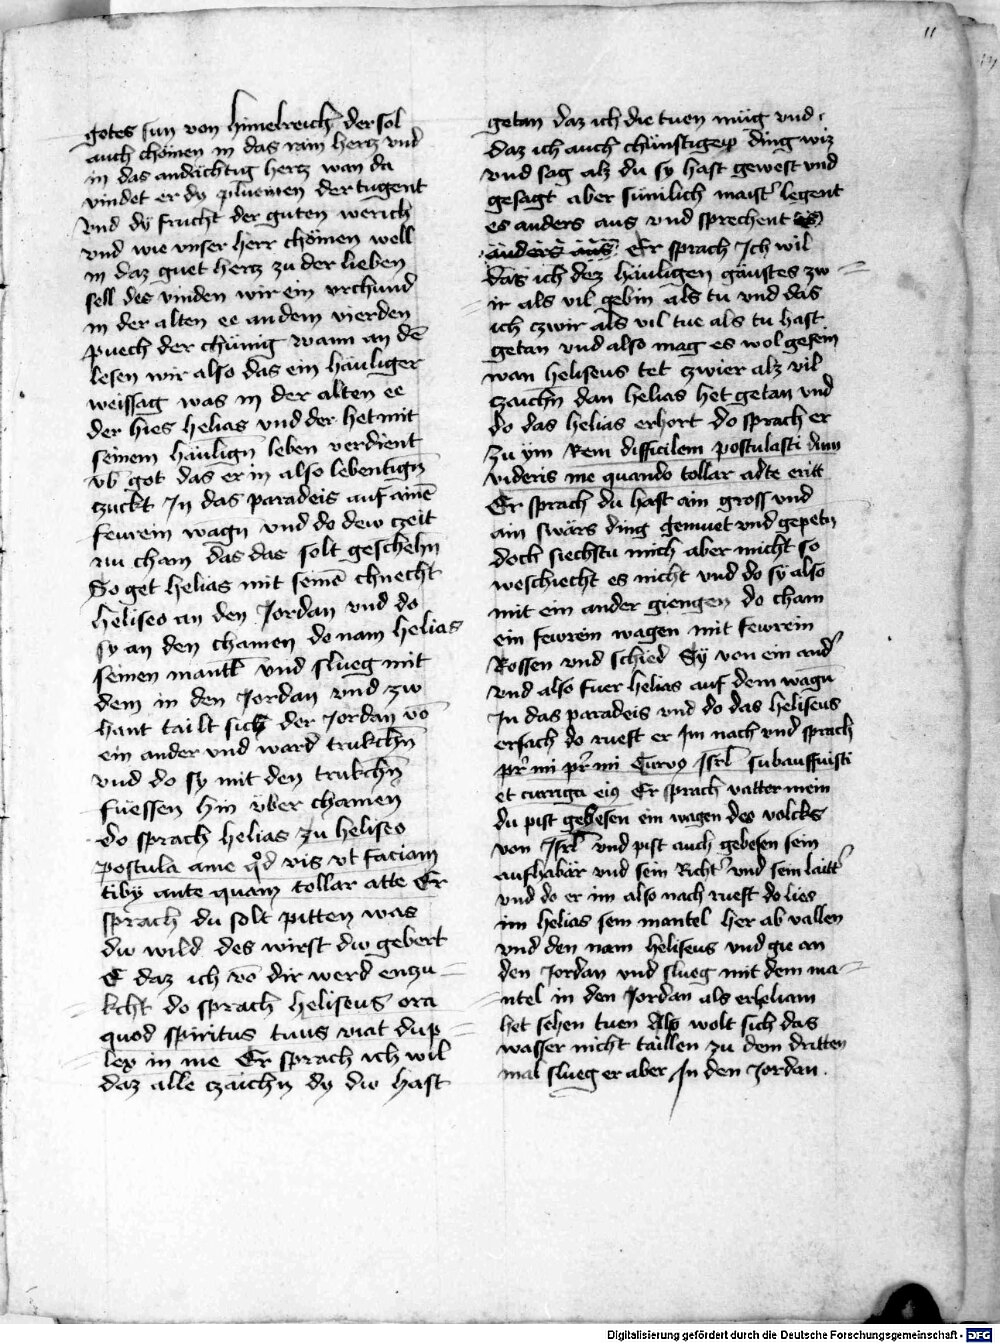 11
gotes sun von himelreich der sol
auch chömen in das rain hertz vnd
in das andächtig hertz wan da
vindet er dy pluemen der tugent
vnd dy frucht der guten werich
vnd wie vnser herr chömen well
in daz guet hertz zu der lieben
sell des vinden wir ein vrchund
in der alten ee an dem vierden
puech der chünig wann an dē
lesen wir also das ein häuliger
weissag was in der alten ee
der hies helias vnd der het mit
seinem häulign̄ leben verdient
vb̄ got das er in also lebentign̄
czuckt In das paradeis auf ainē
fewrein wagn vnd do dew czeit
nu cham das das solt geschehn̄
So get helias mit seinē chnecht
heliseo an den Jordan vnd do
sy an den chamen do nam helias
seinen mantl vnd slueg mit
dem in den Jordan vnd zw
hant tailt sich der Jordan vō
ein ander vnd ward trukchn̄
vnd do sy mit den trukchn̄
füessen hin vber chamen
do sprach helias zu heliseo
postula a me qd vis vt faciam
tiby ante quam tollar atte Er
sprach du solt pitten was
du wild des wirst du gebert
E daz ich vō dir werd enzu=
kcht do sprach heliseus ora
quod spiritus tuus viat dup=
lex in me Er sprach ich wil
daz alle czäichn dy du hast
getan daz ich die tuen müg vnd
daz ich auch chünftigew ding wiz
vnd sag alz du sy hast gewest vnd
gesagt aber sümlich maist' legent
es anders aus vnd sprechent es
anders aus Er sprach Ich wil
das ich dez häuligen gäustes zw=
ir als vil gebin als tu vnd das
ich czwir als vil tue als tu hast
getan vnd also mag es wol gesein
wan heliseus tet czwier alz vil
czaichn dan helias het getan vnd
do das helias erhort do sprach er
zu ym Rem difficilem postulasti dum
videris me quando tollar adte eritt
Er sprach du hast ain gross vnd
ain swärs ding gemuet vnd gepetn
doch siechstu mich aber nicht so
weschiecht es nicht vnd do sy also
mit ein ander giengen do cham
ein fewrein wagen mit fewrein
Rossen vnd schied Sy von ein and'
vnd also fuer helias auf dem wagn̄
In das paradeis vnd do das heliseus
ersach do rueft er Im nach vnd sprach
pr̄ mi pr̄ mi Currus Isrl̄ subauffuisti
et curriga eius Er sprach vatter mein
du pist gebesen ein wagen des volcks
von Isrl̄ vnd pist auch gebesen sein
aufhabär vnd sein Richt' vnd sein läitt'
vnd do er im also nach rueft do lies
im helias sein mantel her ab vallen
vnd den nam heliseus vnd gie an
den Jordan vnd slueg mit dem ma=
ntel in den Jordan als er heliam
het sehen tuen Also wolt sich das
wasser nicht taillen zu dem dritten
mal slueg er aber In den Jordan.
Digitalisierung gefördert durch die Deutsche Forschungsgemeinschaft - DFG